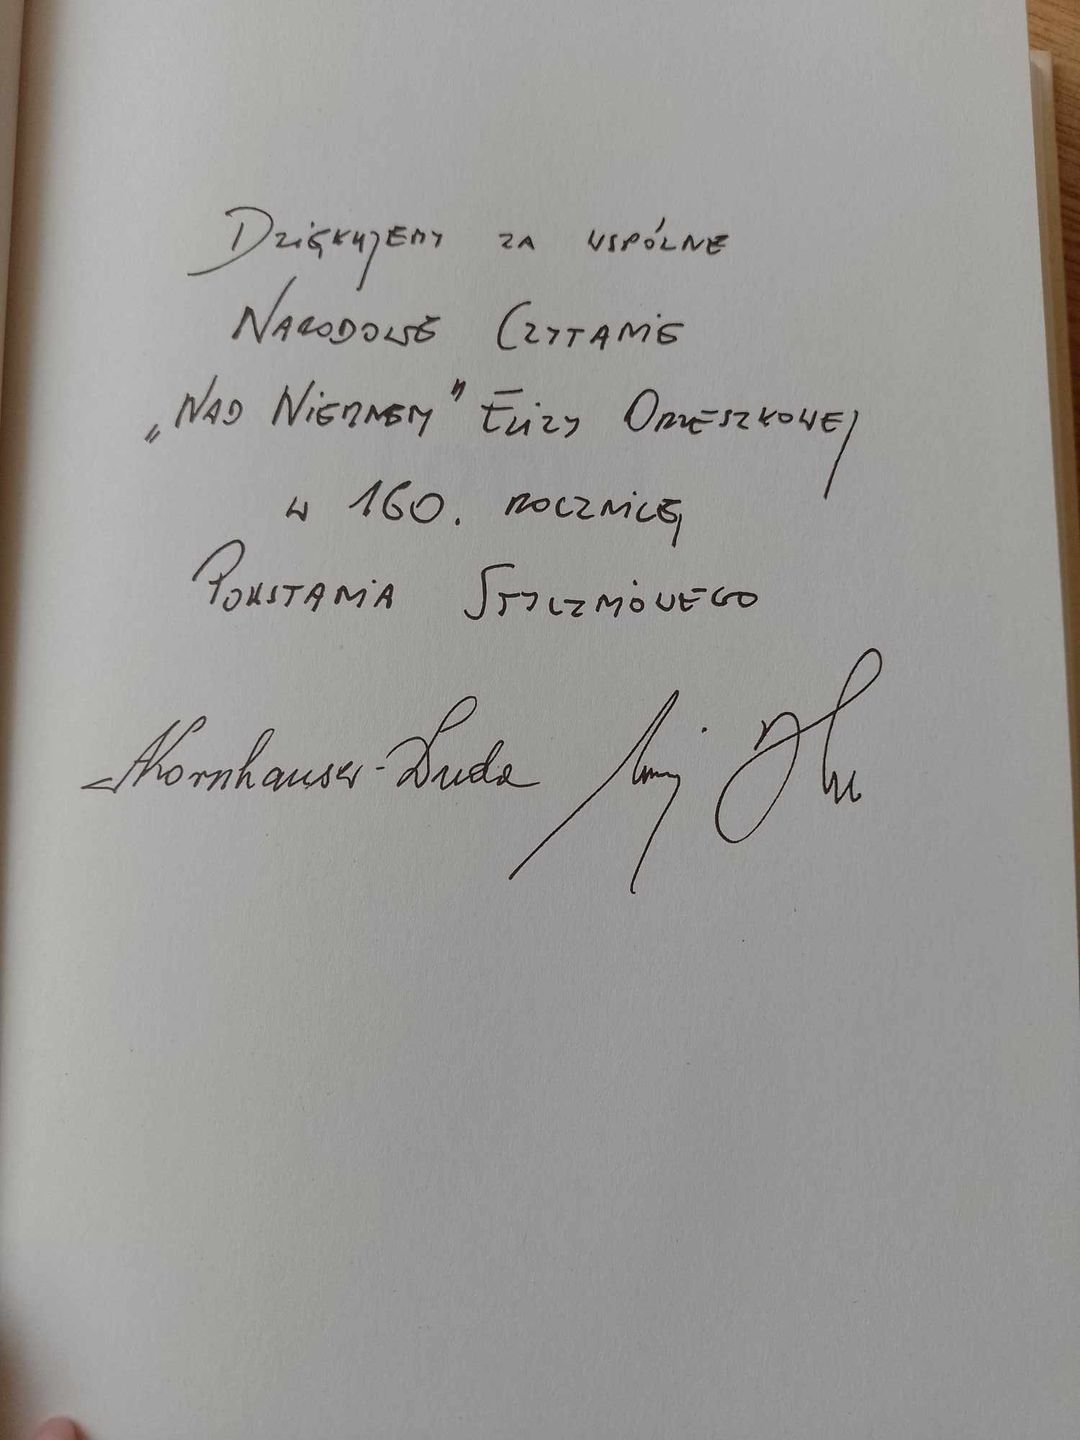 Dziękujemy za wspólne
Narodowe Czytanie
„Nad Niemnem” Elizy Orzeszkowej
w 160. rocznicę
Powstania Styczniowego
AKornhauser-Duda